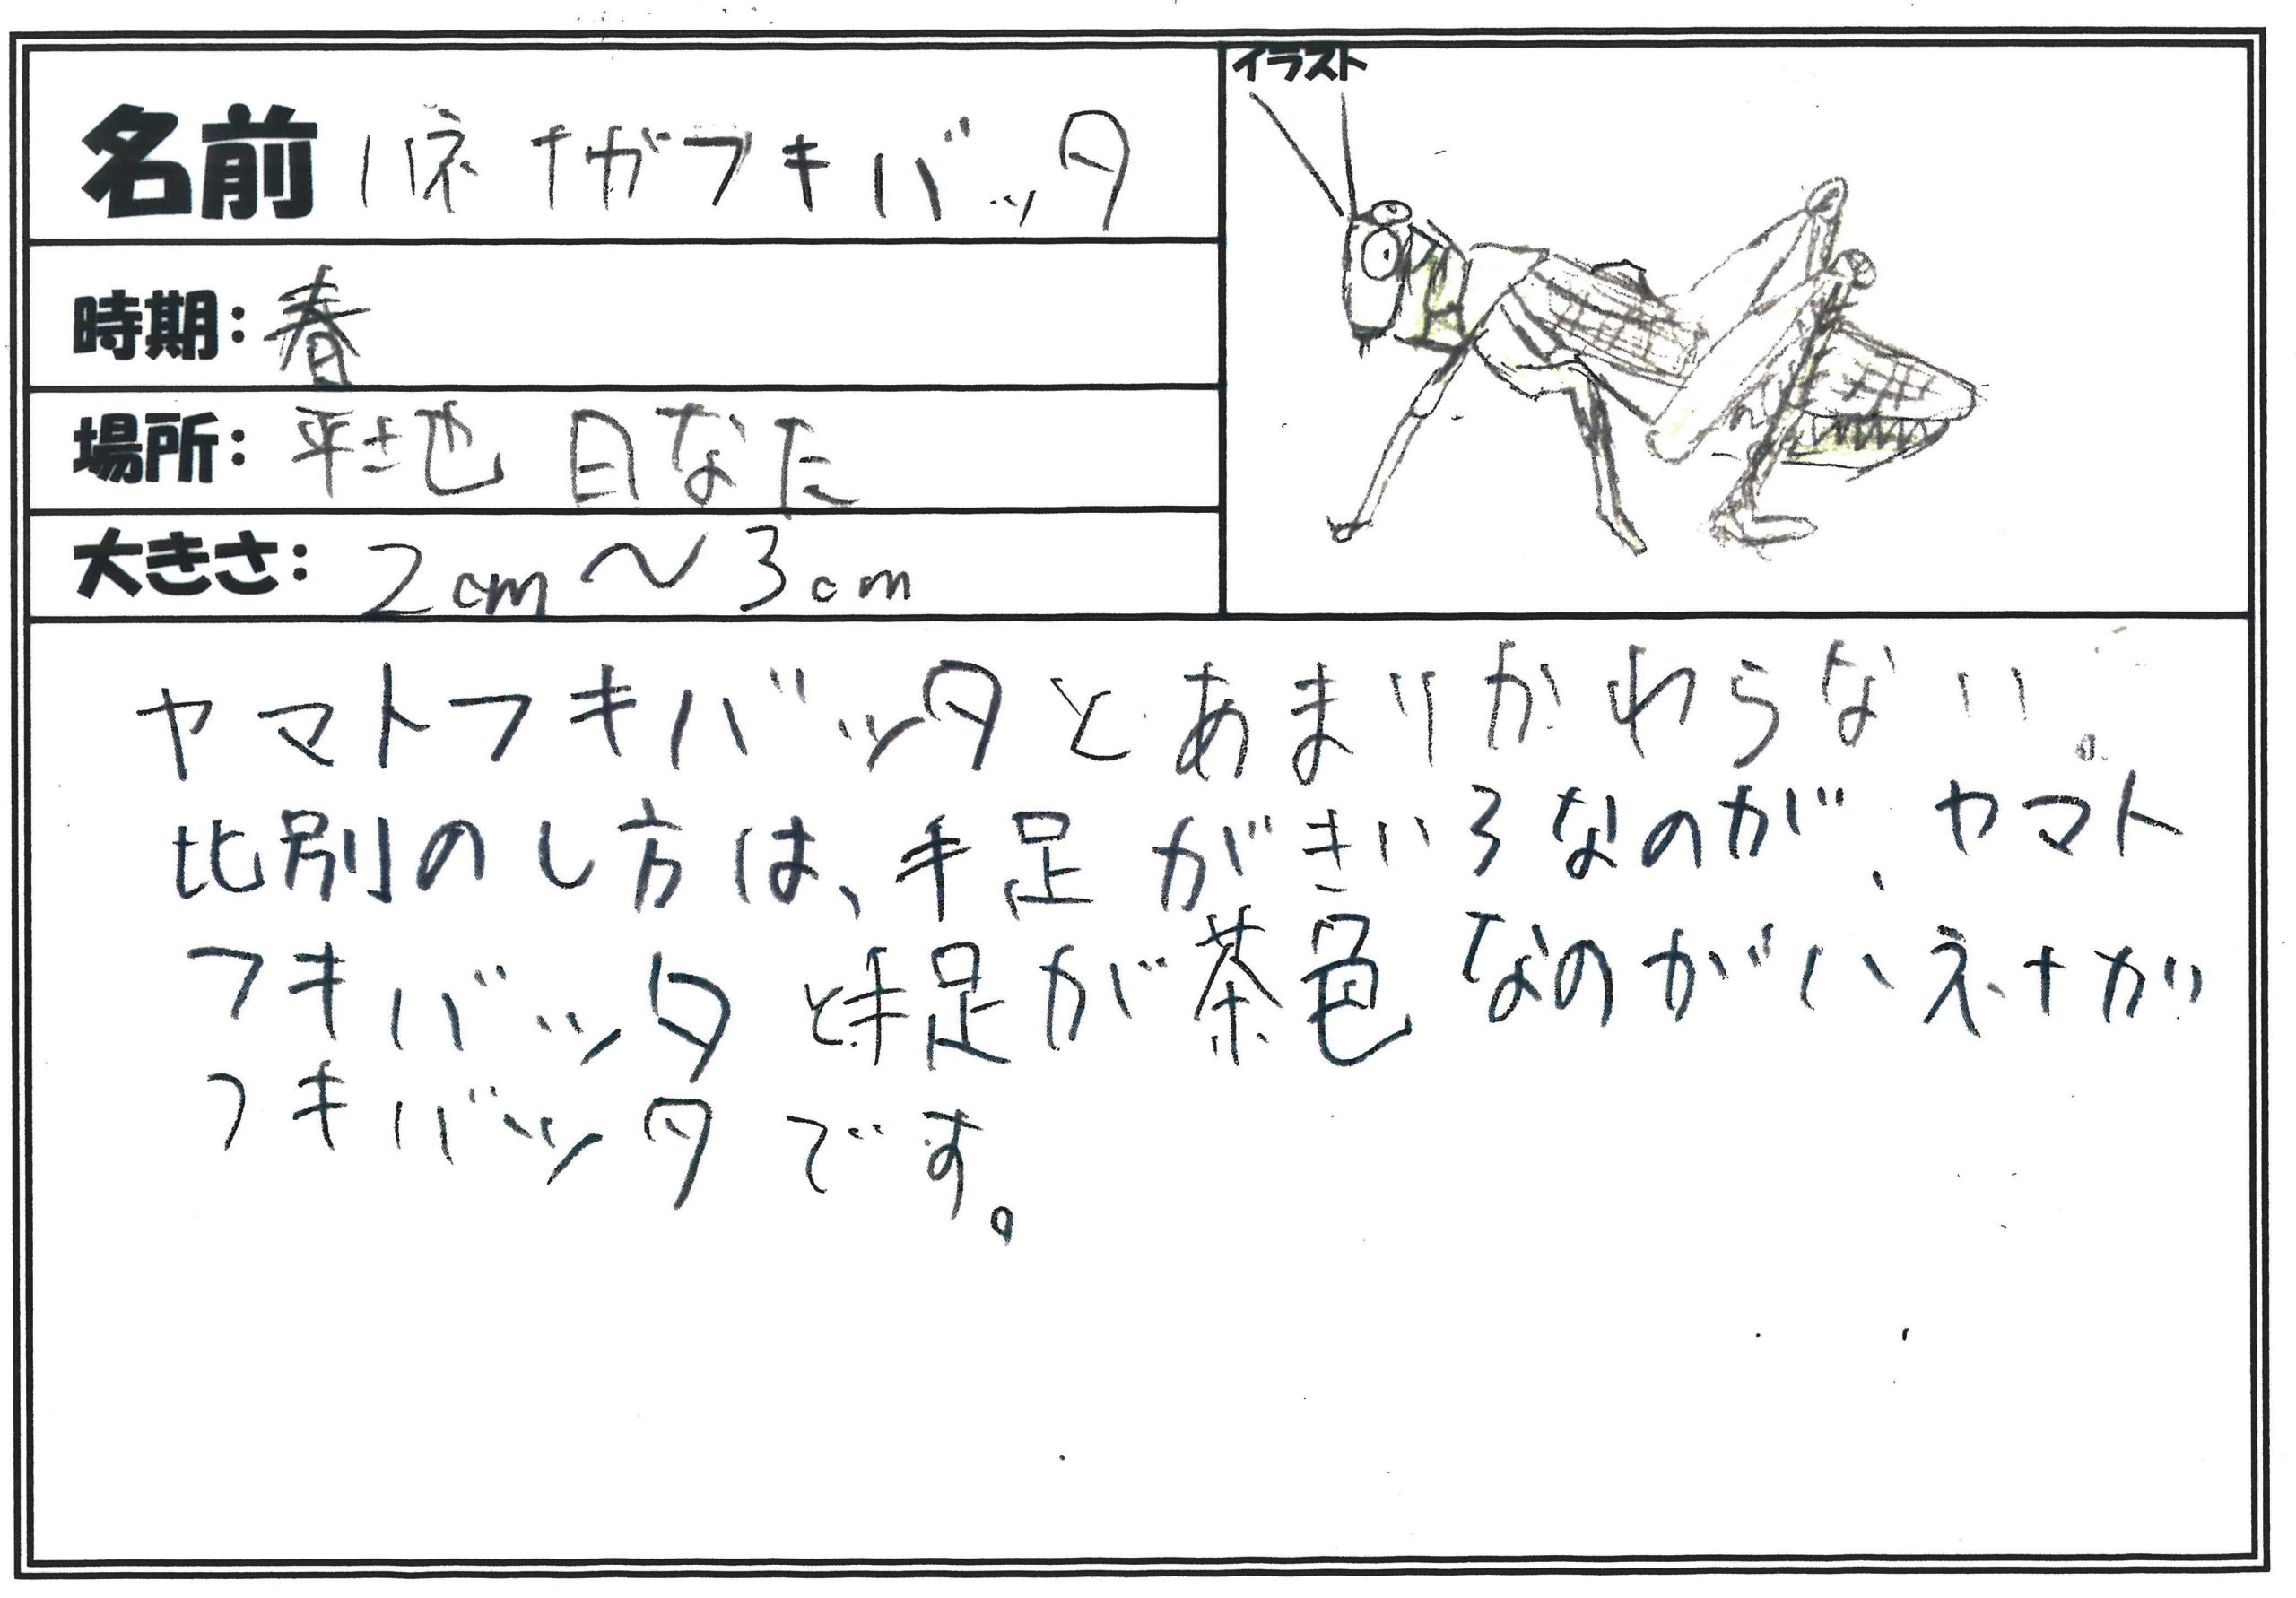 名前 ハネナガフキバッタ
イラスト
時期：春
場所：平地 日なた
大きさ：2cm～3cm
ヤマトフキバッタとあまりかわらない。
比別のし方は、手足がきいろなのが、ヤマト
フキバッタと手足が茶色なのがハネナガ
フキバッタです。